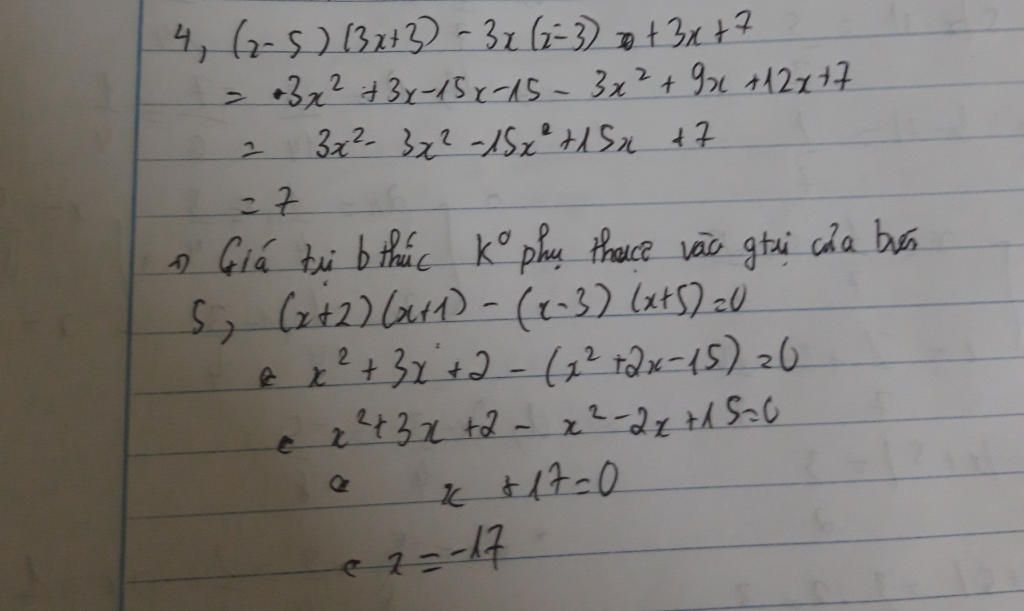 4, (x-5)(3x+3) - 3x(x-3) + 3x+7
= 3x² + 3x-15x-15 - 3x² + 9x +12x+7
= 3x² - 3x² -15x² +15x + 7
= 7
=> Giá trị b thức K° phụ thuộc vào gtrị của biến
5, (x+2)(x+1) - (x-3)(x+5)=0
x² + 3x + 2 - (x² +2x-15) = 0
x² + 3x + 2 - x² - 2x + 15 = 0
x + 17 = 0
x = -17